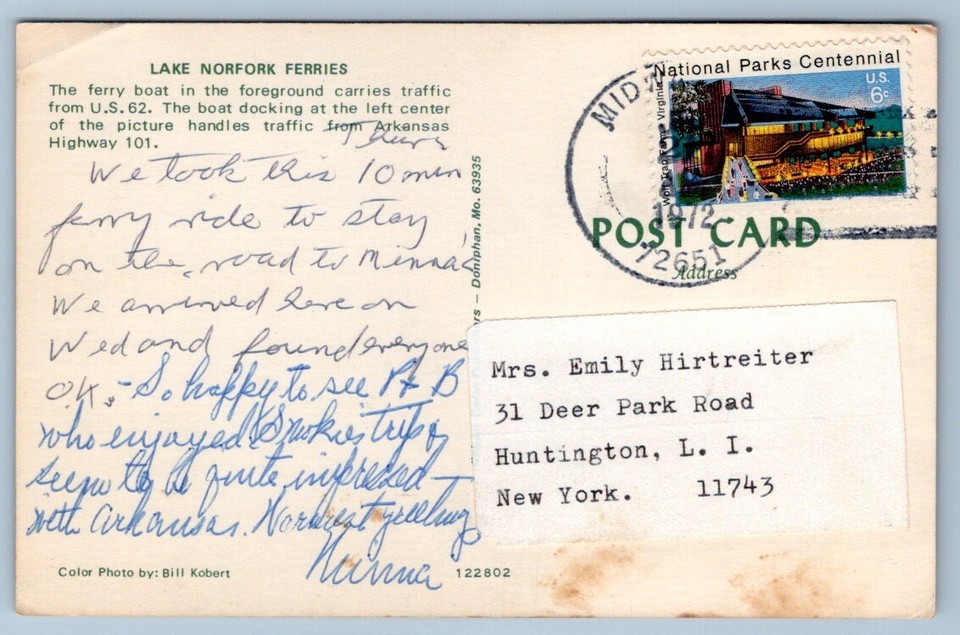 LAKE NORFORK FERRIES
The ferry boat in the foreground carries traffic
from U.S. 62. The boat docking at the left center
of the picture handles traffic from Arkansas
Highway 101.
Thurs
We took this 10 min
ferry ride to stay
on the road to Minna's
We arrived here on
Wed and found everyone
O.K. - So happy to see P + B
who enjoyed Smokies trip &
seem to be quite impressed
with Arkansas. Warmest greetings
Minna
Color Photo by: Bill Kobert
122802
rs — Doniphan, Mo. 63935
MIDW
1972
72651
National Parks Centennial
Wolf Trap Farm Virginia
U.S.
6c
POST CARD
Address
Mrs. Emily Hirtreiter
31 Deer Park Road
Huntington, L. I.
New York. 11743